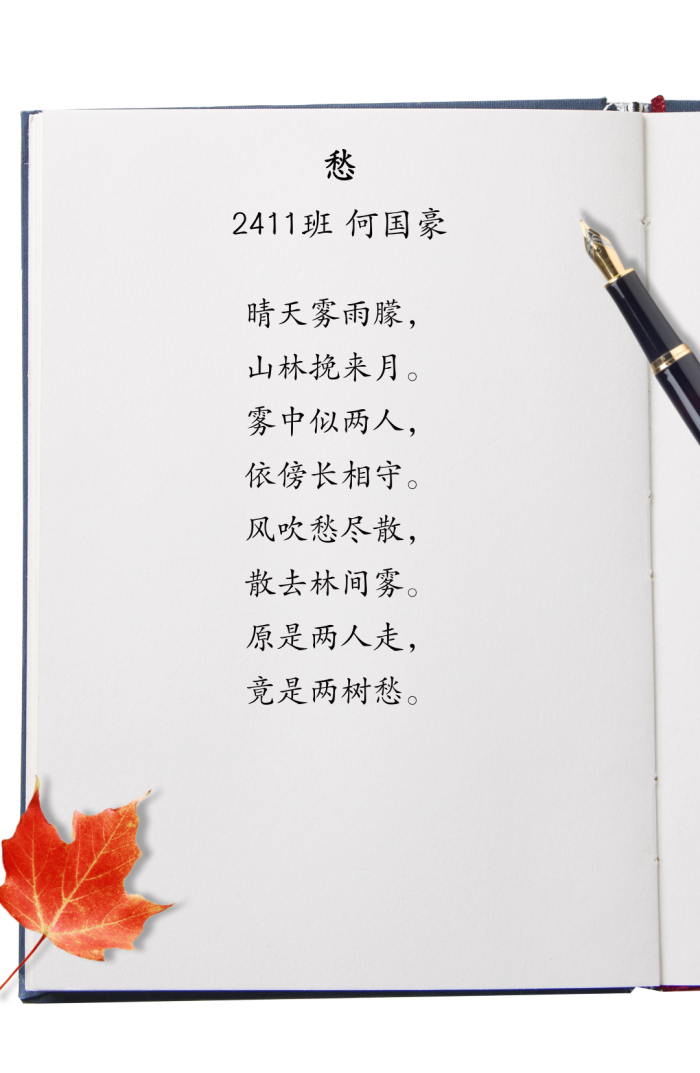 愁
2411班 何国豪
晴天雾雨朦，
山林挽来月。
雾中似两人，
依傍长相守。
风吹愁尽散，
散去林间雾。
原是两人走，
竟是两树愁。